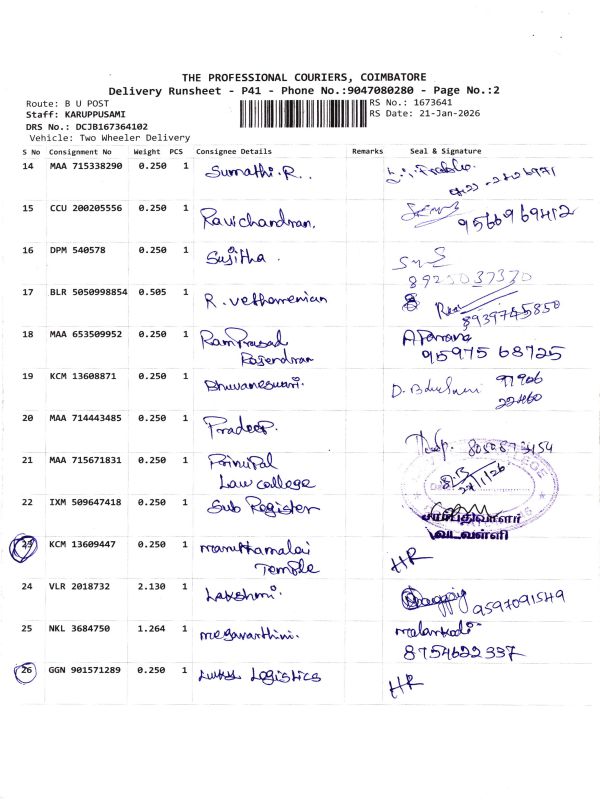 THE PROFESSIONAL COURIERS, COIMBATORE
Delivery Runsheet - P41 - Phone No.:9047080280 - Page No.:2
Route: B U POST RS No.: 1673641
Staff: KARUPPUSAMI RS Date: 21-Jan-2026
DRS No.: DCJB167364102
Vehicle: Two Wheeler Delivery
S No Consignment No Weight PCS Consignee Details Remarks Seal & Signature
14 MAA 715338290 0.250 1 Sumathi.R..
15 CCU 200205556 0.250 1 Ravichandran. 9566969412
16 DPM 540578 0.250 1 Sujitha.
8925037370
17 BLR 5050998854 0.505 1 R. vethamenian
8939745850
18 MAA 653509952 0.250 1 Ramprasad
Rajendran 95975 68725
19 KCM 13608871 0.250 1 Bhuvaneswari. 97906
22460
20 MAA 714443485 0.250 1 Pradeep.
21 MAA 715671831 0.250 1 Prinuipal
Law college
22 IXM 509647418 0.250 1 Sub Register
சார்பதிவாளர்
வடவள்ளி
23 KCM 13609447 0.250 1 maruthamalai HR
Temple
24 VLR 2018732 2.130 1 Lakshmi. 9597091549
25 NKL 3684750 1.264 1 megavarthini. malarkodi
8754622337
26 GGN 901571289 0.250 1 Logistics HR